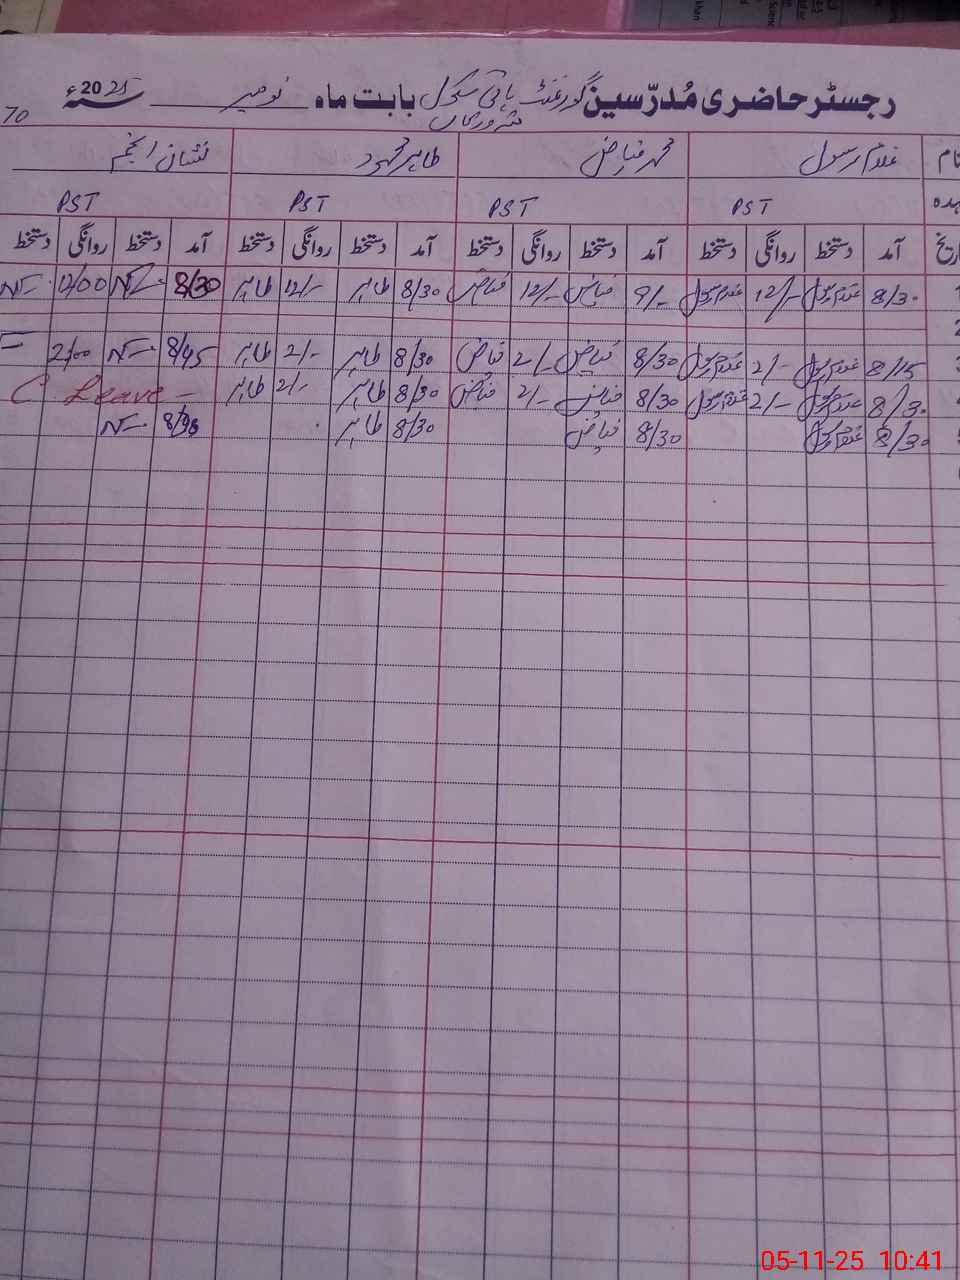 رجسٹر حاضری مُدرّسین گورنمنٹ ہائی سکول بابت ماہ نومبر 2025ء
70
نام غلام رسول محمد فیاض طاہر محمود نشان انجم
عہدہ PST PST PST PST
تاریخ آمد دستخط روانگی دستخط آمد دستخط روانگی دستخط آمد دستخط روانگی دستخط آمد دستخط روانگی دستخط
1 8/30 غلام رسول 12/- غلام رسول 9/- فیاض 12/- فیاض 8/30 طاہر 12/- طاہر 8/30 12/00
2
3 8/15 غلام رسول 2/- غلام رسول 8/30 فیاض 2/- فیاض 8/30 طاہر 2/- طاہر 8/45 2/00
4 8/30 غلام رسول 2/- غلام رسول 8/30 فیاض 2/- فیاض 8/30 طاہر 2/- طاہر C Leave -
5 8/30 غلام رسول 8/30 فیاض 8/30 طاہر
05-11-25 10:41